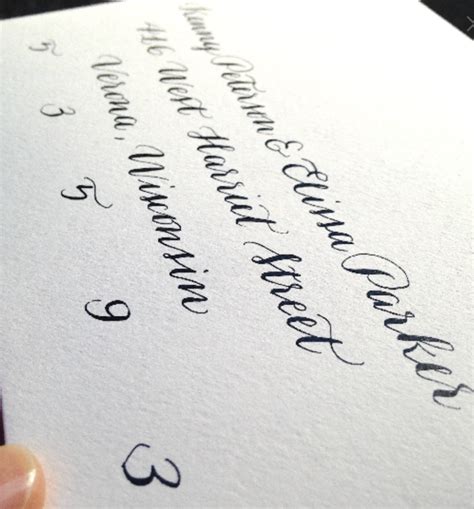 Kenny Peterson & Elissa Parker
416 West Harriet Street
Verona, Wisconsin
5 3 5 9 3